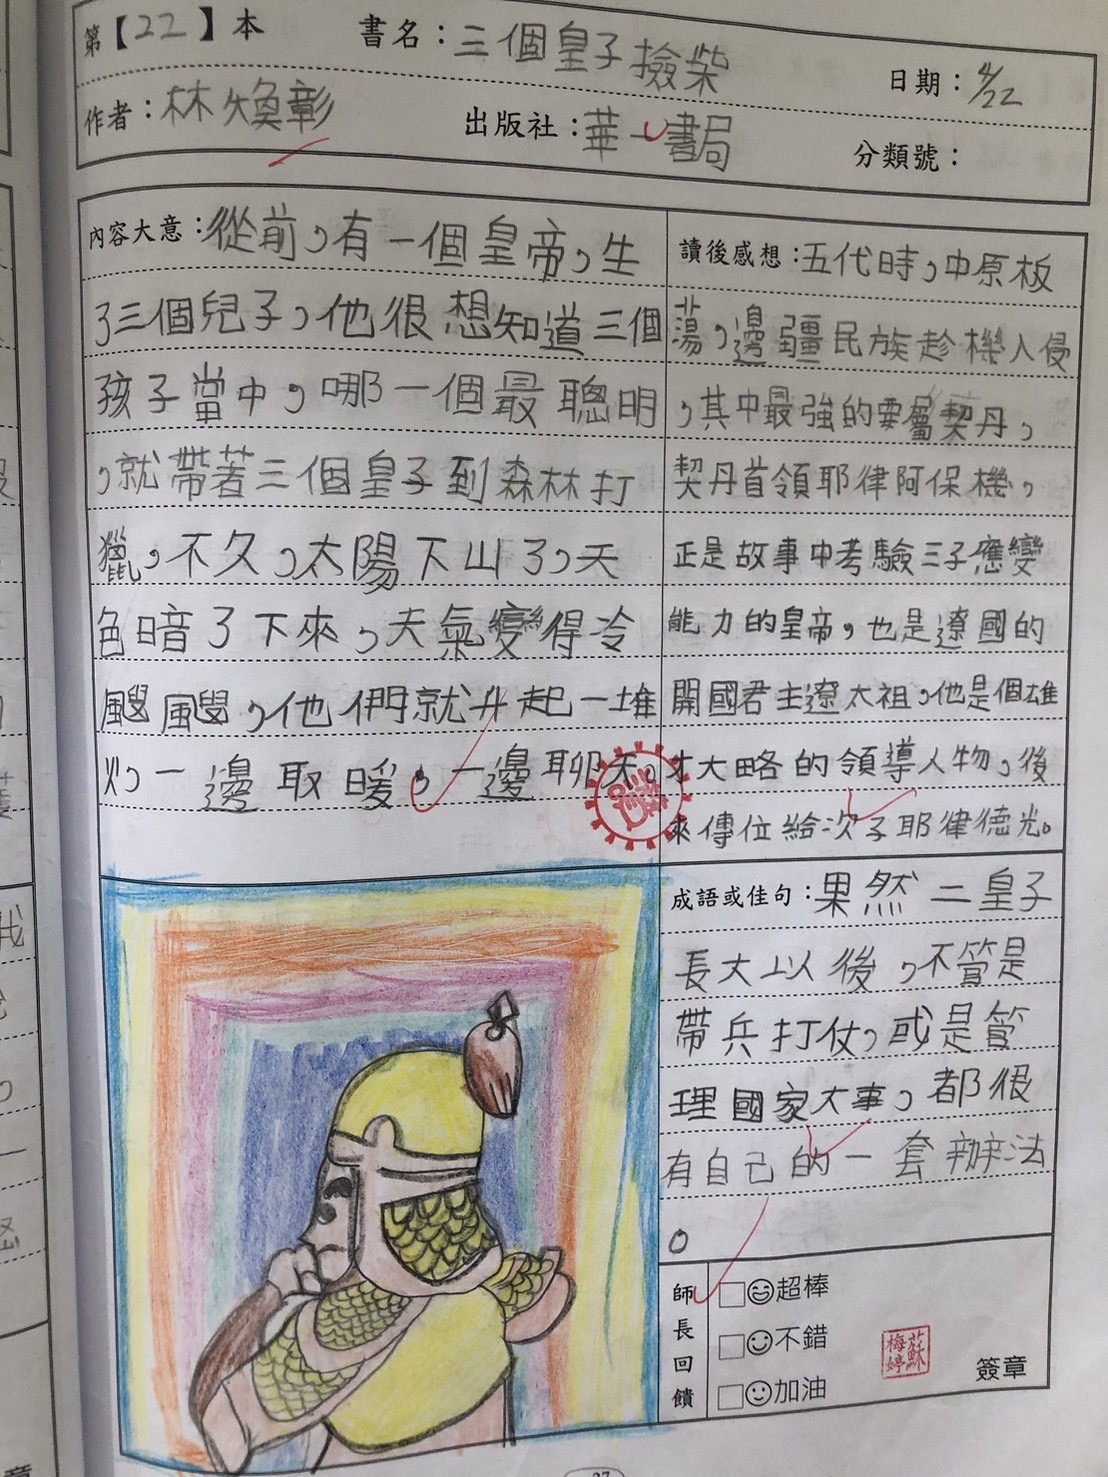 第【22】本 書名：三個皇子撿柴 日期：4/22
作者：林煥彰 出版社：華一書局 分類號：
內容大意：從前，有一個皇帝，生
了三個兒子，他很想知道三個
孩子當中，哪一個最聰明
，就帶著三個皇子到森林打
獵，不久，太陽下山了，天
色暗了下來，天氣變得冷
颼颼，他們就升起一堆
火，一邊取暖，一邊聊天。
讀後感想：五代時，中原板
蕩，邊疆民族趁機入侵
，其中最強的要屬契丹，
契丹首領耶律阿保機，
正是故事中考驗三子應變
能力的皇帝，也是遼國的
開國君主遼太祖，他是個雄
才大略的領導人物，後
來傳位給次子耶律德光。
成語或佳句：果然二皇子
長大以後，不管是
帶兵打仗，或是管
理國家大事，都很
有自己的一套辦法
。
師長回饋
□超棒
□不錯
□加油
蘇梅婷
簽章
27